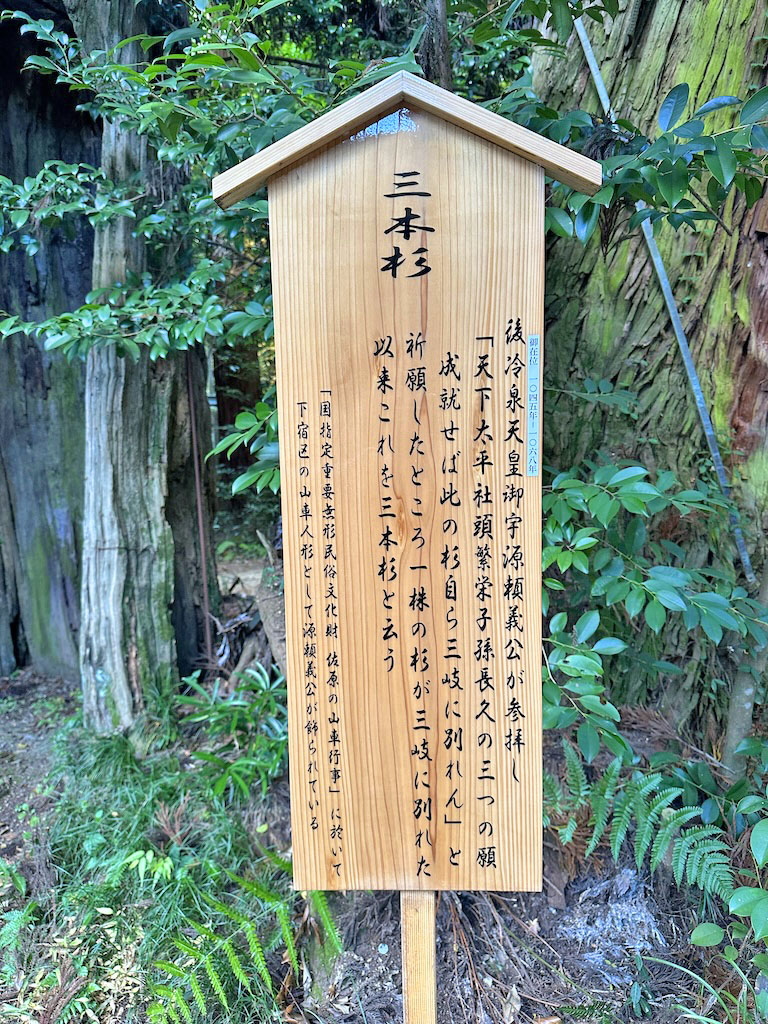 三本杉
御在位 一〇四五年-一〇六八年
後冷泉天皇御宇源頼義公が参拝し
「天下太平社頭繁栄子孫長久の三つの願
成就せば此の杉自ら三岐に別れん」と
祈願したところ一株の杉が三岐に別れた
以来これを三本杉と云う
「国指定重要無形民俗文化財 佐原の山車行事」に於いて
下宿区の山車人形として源頼義公が飾られている